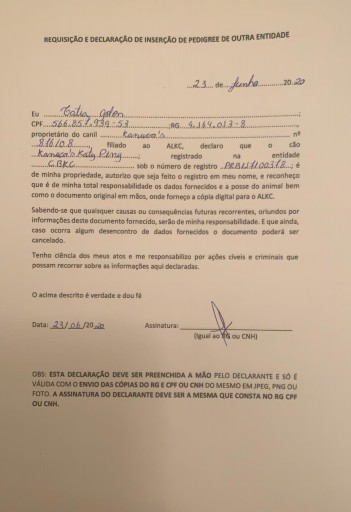 REQUISIÇÃO E DECLARAÇÃO DE INSERÇÃO DE PEDIGREE DE OUTRA ENTIDADE
23 de Junho 2020
Eu
CPF 566.857.939-53 ;RG 4.164.013-8
proprietário do canil Kanuca's nº
87610.8 filiado ao ALKC, declaro que o cão
Kanuca's Katy Peny registrado na entidade
CBKC sob o número de registro é
de minha propriedade, autorizo que seja feito o registro em meu nome, e reconheço
que é de minha total responsabilidade os dados fornecidos e a posse do animal bem
como o documento original em mãos, onde forneço a cópia digital para o ALKC.
Sabendo-se que quaisquer causas ou consequências futuras recorrentes, oriundos por
informações deste documento fornecido, serão de minha responsabilidade. E que ainda,
caso ocorra algum desencontro de dados fornecidos o documento poderá ser
cancelado.
Tenho ciência dos meus atos e me responsabilizo por ações cíveis e criminais que
possam recorrer sobre as informações aqui declaradas.
O acima descrito é verdade e dou fé
Data: 23/06/2020 Assinatura:
(Igual ao RG ou CNH)
OBS: ESTA DECLARAÇÃO DEVE SER PREENCHIDA A MÃO PELO DECLARANTE E SÓ É
VÁLIDA COM O ENVIO DAS CÓPIAS DO RG E CPF OU CNH DO MESMO EM JPEG, PNG OU
FOTO. A ASSINATURA DO DECLARANTE DEVE SER A MESMA QUE CONSTA NO RG CPF
OU CNH.